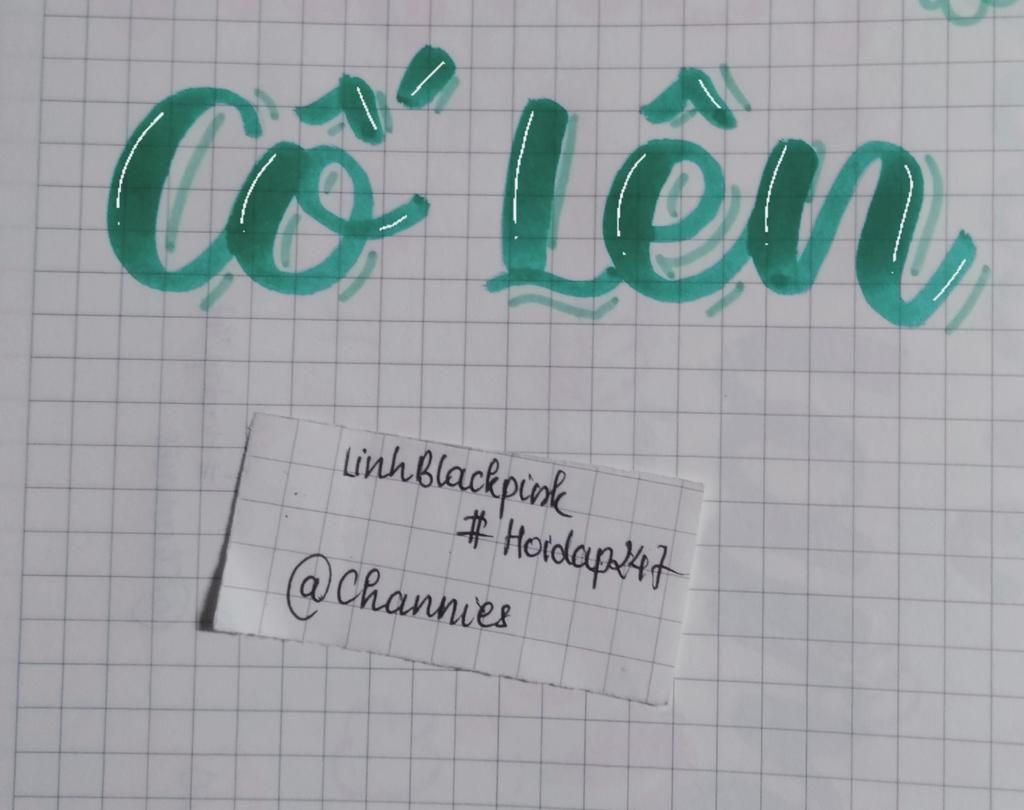 Cố Lên
LinhBlackpink
# Hoidap247
@Channies